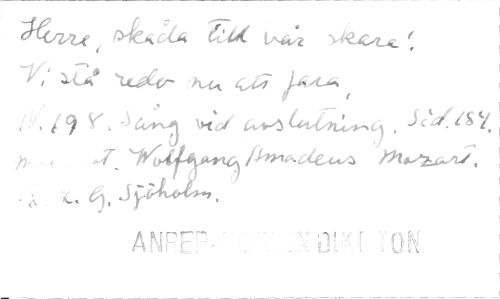 Herre, skåda till vår skara!
Vi stå redo nu att fara,
N. 198. Sång vid avslutning. Sid. 184.
Wolfgang Amadeus Mozart.
L. G. Sjöholm.
ANREP-